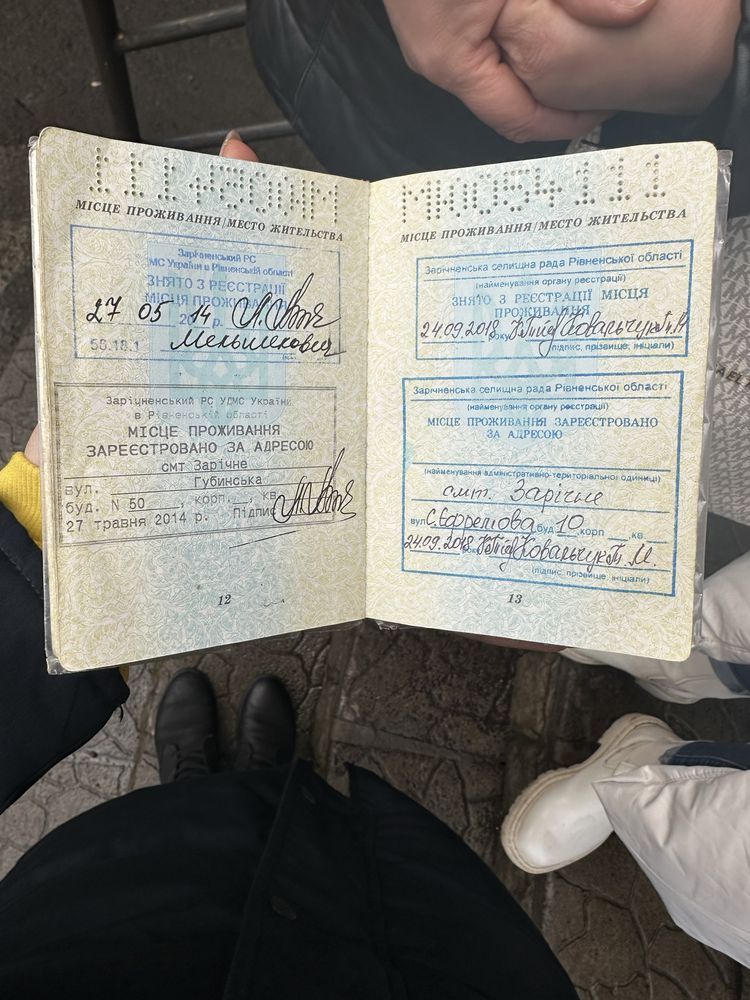 МІСЦЕ ПРОЖИВАННЯ/МЕСТО ЖИТЕЛЬСТВА
Зарічненський РС
МС України в Рівненській області
ЗНЯТО З РЕЄСТРАЦІЇ
МІСЦЯ ПРОЖИВАННЯ
27 05 14 р.
56.18.1 Мельникович
Зарічненський РС УДМС України
в Рівненській області
МІСЦЕ ПРОЖИВАННЯ
ЗАРЕЄСТРОВАНО ЗА АДРЕСОЮ
смт Зарічне
вул. Губинська
буд. N 50 корп. кв.
27 травня 2014 р. Підпис
12
МК054111
МІСЦЕ ПРОЖИВАННЯ/МЕСТО ЖИТЕЛЬСТВА
Зарічненська селищна рада Рівненської області
(найменування органу реєстрації)
ЗНЯТО З РЕЄСТРАЦІЇ МІСЦЯ
ПРОЖИВАННЯ
24.09.2018 року Ковальчук Т. М.
(підпис, прізвище, ініціали)
Зарічненська селищна рада Рівненської області
(найменування органу реєстрації)
МІСЦЕ ПРОЖИВАННЯ ЗАРЕЄСТРОВАНО
ЗА АДРЕСОЮ
(найменування адміністративно-територіальної одиниці)
смт. Зарічне
вул С.Єфремова буд 10 корп кв.
24.09.2018 Ковальчук Т. М.
(підпис, прізвище, ініціали)
13